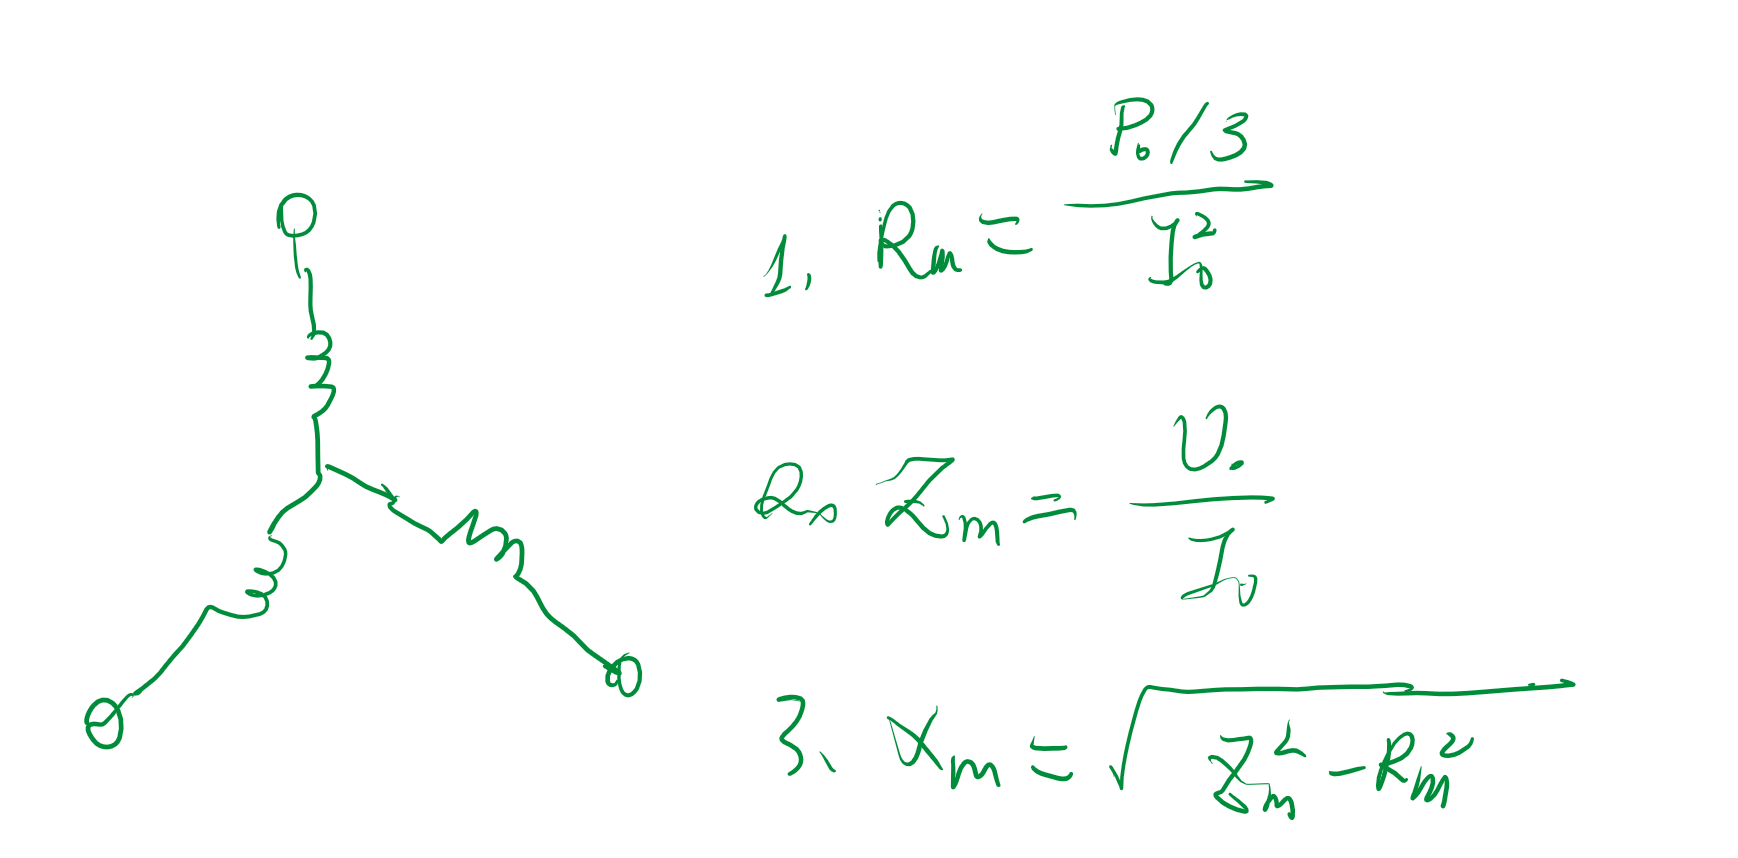 1. Rₘ = (P₀/3) / I₀²
2. Zₘ = U. / I₀
3、 Xₘ = √(Zₘ² - Rₘ²)